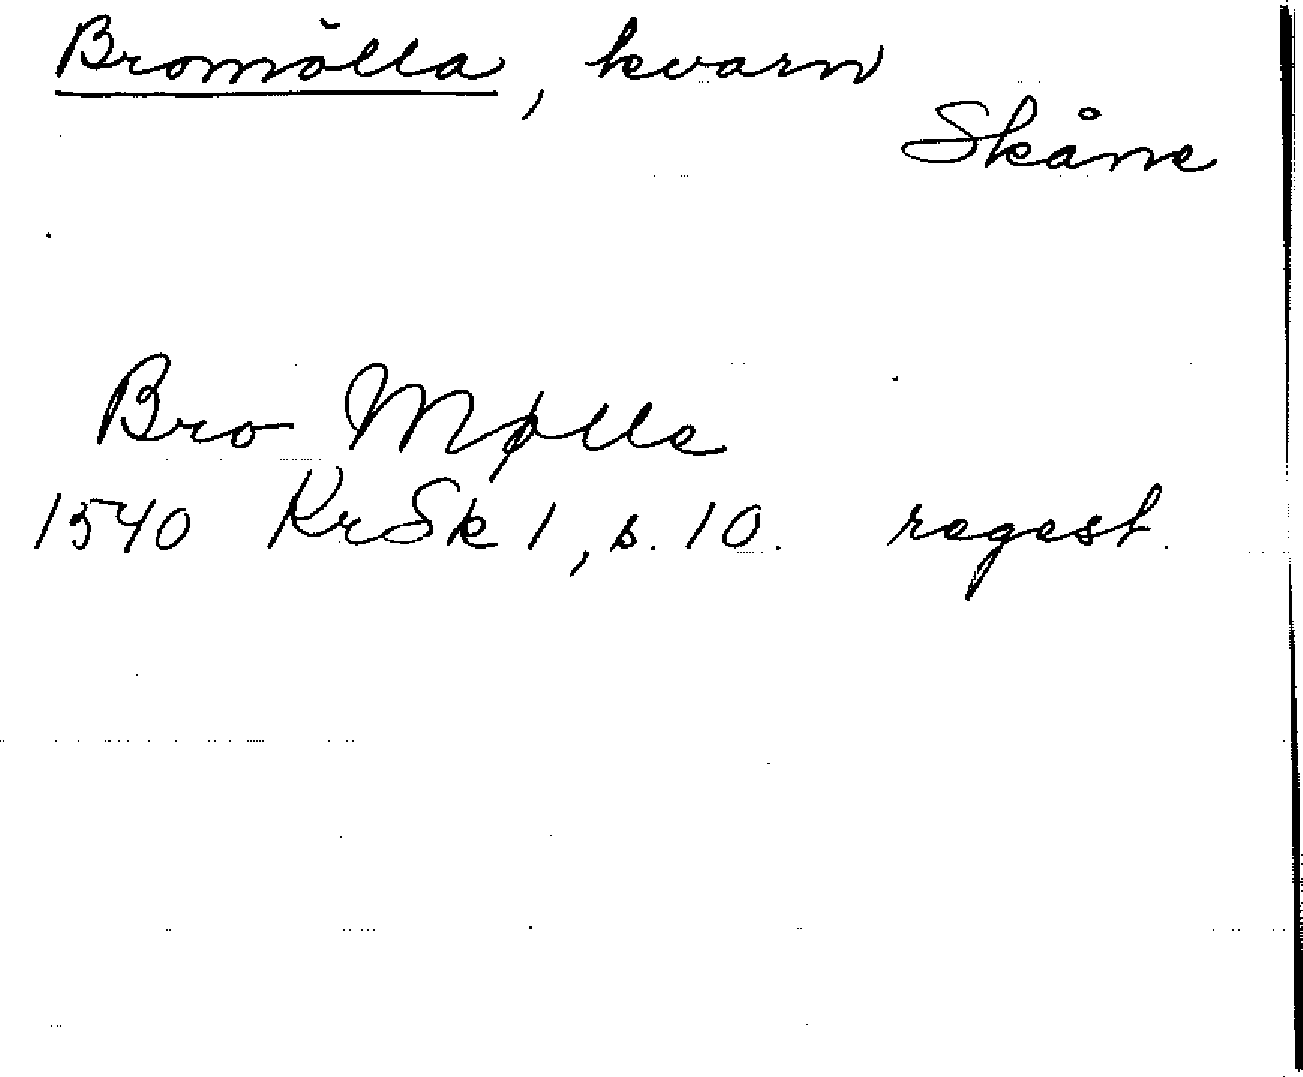 Bromölla, kvarn
Skåne
Bro Mølle
1540 KrSk 1, s. 10. regest.